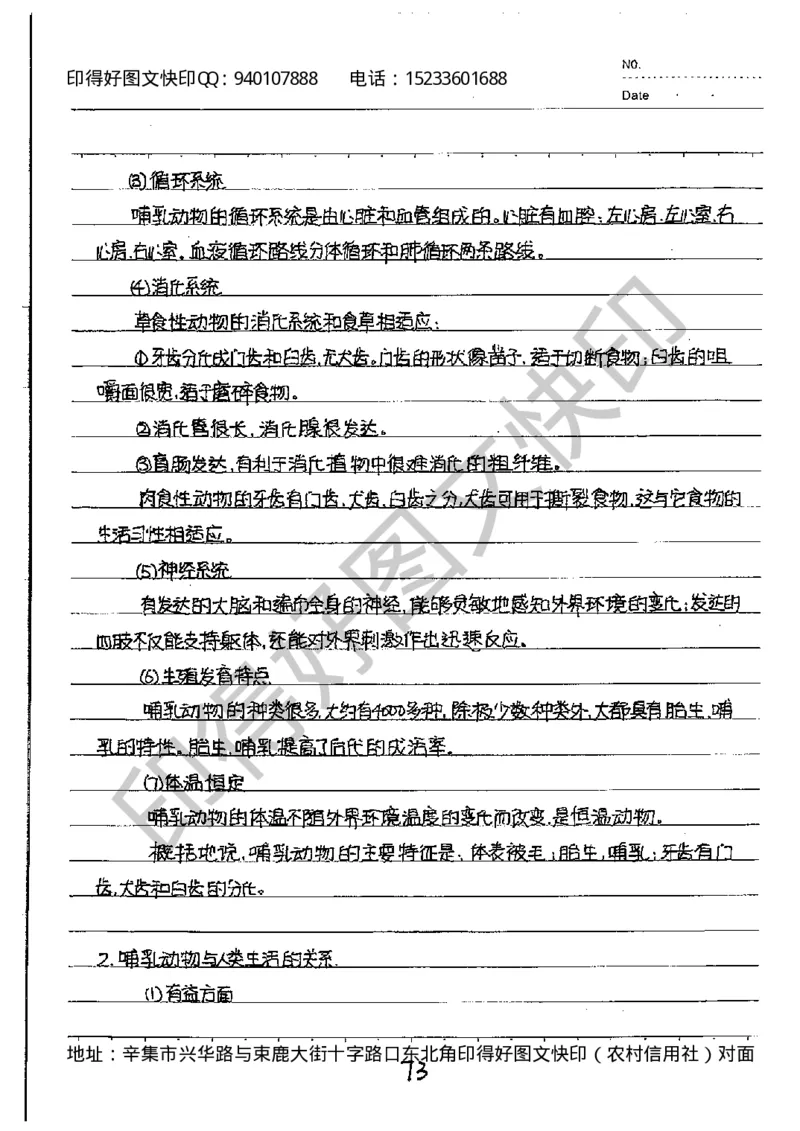 印得好图文快印QQ：940107888 电话：15233601688
NO.
Date
(3)循环系统
哺乳动物的循环系统是由心脏和血管组成的。心脏有四腔：左心房、左心室、右
心房、右心室。血液循环路线分体循环和肺循环两条路线。
(4)消化系统
草食性动物的消化系统和食草相适应：
①牙齿分化成门齿和臼齿，无犬齿。门齿的形状像凿子，适于切断食物；臼齿的咀
嚼面很宽，适于磨碎食物。
②消化管很长，消化腺很发达。
③盲肠发达，有利于消化植物中很难消化的粗纤维。
肉食性动物的牙齿有门齿、犬齿、臼齿之分，犬齿可用于撕裂食物，这与它食物的
生活习性相适应。
(5)神经系统
有发达的大脑和遍布全身的神经，能够灵敏地感知外界环境的变化；发达的
四肢不仅能支持躯体，还能对外界刺激作出迅速反应。
(6)生殖发育特点
哺乳动物的种类很多，大约有4000多种，除极少数种类外，大都具有胎生、哺
乳的特性。胎生、哺乳提高了后代的成活率。
(7)体温恒定
哺乳动物的体温不随外界环境温度的变化而改变，是恒温动物。
概括地说，哺乳动物的主要特征是：体表被毛；胎生，哺乳；牙齿有门
齿、犬齿和臼齿的分化。
2.哺乳动物与人类生活的关系
(1)有益方面
地址：辛集市兴华路与束鹿大街十字路口东北角印得好图文快印（农村信用社）对面
73
印得好图文快印